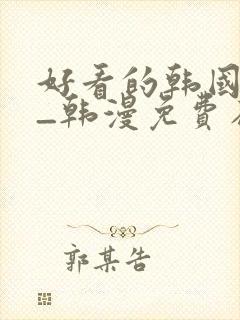 好看的韩国
_韩漫免费
郭某告